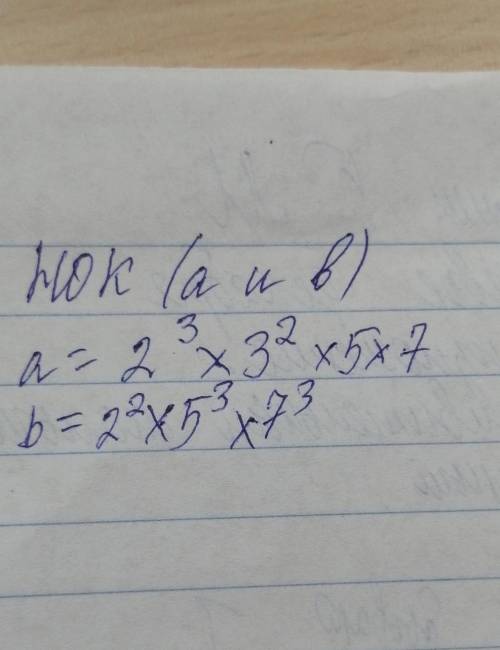 НОК (а и в)
a = 2³ × 3² × 5 × 7
b = 2² × 5³ × 7³